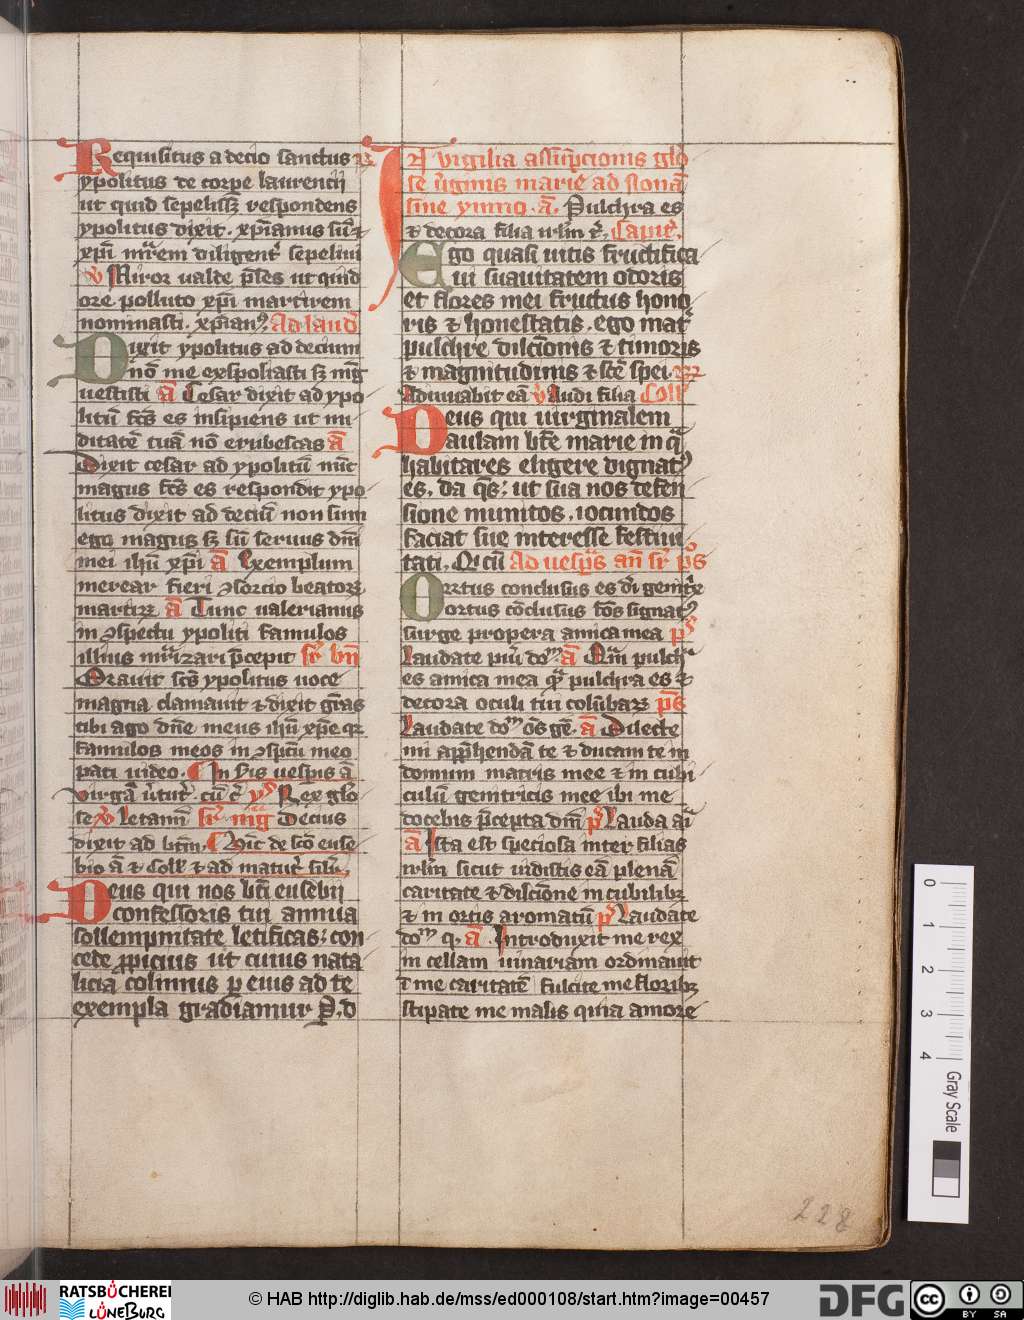 Requisitus a decio sanctus R
ypolitus de corpe laurencij
ut quid sepelissz respondens
ypolitus dixit . xp̄ianus
xp̄i diligent' sepeliui
v Miror valde ut quid
ore polluto xp̄i martirem
nominasti . xp̄ian9. Ad laud
Dixit ypolitus ad decium
nō me exspoliasti sz mg̅
uestisti ā Cesar dixit ad ypo
litū es insipiens ut nu
ditatē tuā nō erubescas ā
Dixit cesar ad ypolitū
magus es respondit ypo
litus dixit ad deciū non sum
ego magus sz seruus dn̄i
mei ihū xp̄i ā Exemplum
merear fieri ꝯsorcio beatoꝝ
martirꝝ ā Tunc valerianus
in ꝯspectu ypoliti famulos
illius p̄cepit
Orauit sc̄s ypolitus uoce
magna clamauit ⁊ dixit gr̄as
tibi ago dn̄e meus ihū xp̄e qꝛ
famulos meos in ꝯspectū meo
pati uideo. In ijs uesp̄is ā
Virgā Rex glo'
se v Letamī Decius
dixit ad de sc̄o euse
bio ā ⁊ Coll' ⁊ ad matut'
Deus qui nos bt̄i eusebij
confessoris tui annua
sollempnitate letificas: con
cede ꝓpicius ut cuius nata
licia colimus ꝑ eius ad te
exempla gradiamur P. d
In vigilia assūpcionis glo'
se v'ginis marie ad nonā
sine ympno . ā. Pulchra es
⁊ decora filia irl'm Capit'.
Ego quasi uitis fructifica
ui suauitatem odoris
et flores mei fructus hono
ris ⁊ honestatis . ego mat'
pulchre dilcōnis ⁊ timoris
⁊ magnitudinis ⁊ sc̄e spei. R
Adiuuabit eā v Audi filia Coll'
Deus qui uirginalem
aulam bt̄e marie in qͣ
habitares eligere dignat9
es. da q̄s: ut sua nos defen
sione munitos . iocundos
faciat sue interesse festiui
tati. Q' cū Ad uesp̄as an̄ sr̄ ps
Ortus conclusus es di genit'x
ortus cōclusus fōs signat9
surge propera amica mea ps
Laudate dom̄ ā Qm̄ pulchͣ
es amica mea qͣ pulchra es ⁊
decora oculi tui colūbaꝝ ps
Laudate dom̄ ōs ge. ā Dilecte
mi app̄hendā te ⁊ ducam te in
domum matris mee ⁊ in cubi
culū genitricis mee ibi me
docebis p̄cepta dn̄i ps Lauda aīa
ā Ista est speciosa inter filias
irl'm sicut uidistis eā plenā
caritate ⁊ dilcōne in cubilibꝫ
⁊ in ortis aromatū ps Laudate
dom̄ q. ā. Introduxit me rex
in cellam uinariam ordinauit
ī me caritatē fulcite me floribꝫ
stipate me malis quia amore
228
0
1
2
3
4
Gray Scale
RATSBÜCHEREI
LÜNEBURG
© HAB http://diglib.hab.de/mss/ed000108/start.htm?image=00457
DFG
cc
BY SA